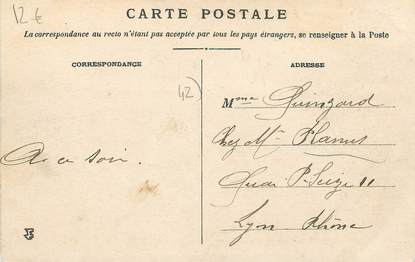 12€
CARTE POSTALE
La correspondance au recto n'étant pas acceptée par tous les pays étrangers, se renseigner à la Poste
CORRESPONDANCE
ADRESSE
42)
Mme Guingard
Chez Mr Planus
A ce soir.
Quai P-Seize 11
Lyon Rhône